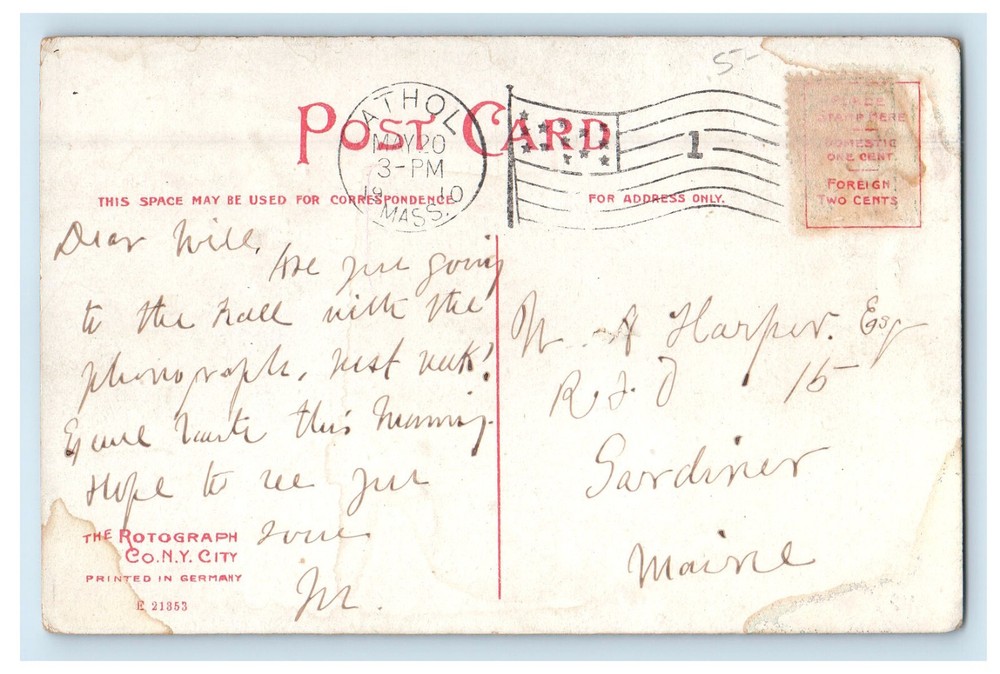 5-
POST CARD
ATHOL
MAY 20
3-PM
1910
MASS.
1
PLACE
STAMP HERE
DOMESTIC
ONE CENT.
FOREIGN
TWO CENTS
THIS SPACE MAY BE USED FOR CORRESPONDENCE
FOR ADDRESS ONLY.
Dear Will,
are just going
to the hall with the
phonograph, next week!
wrote this morning.
Hope to see you
soon.
THE ROTOGRAPH
CO. N.Y. CITY
PRINTED IN GERMANY
E 21353
W. A Harper. Esq
R. F. D 15
Gardiner
Maine